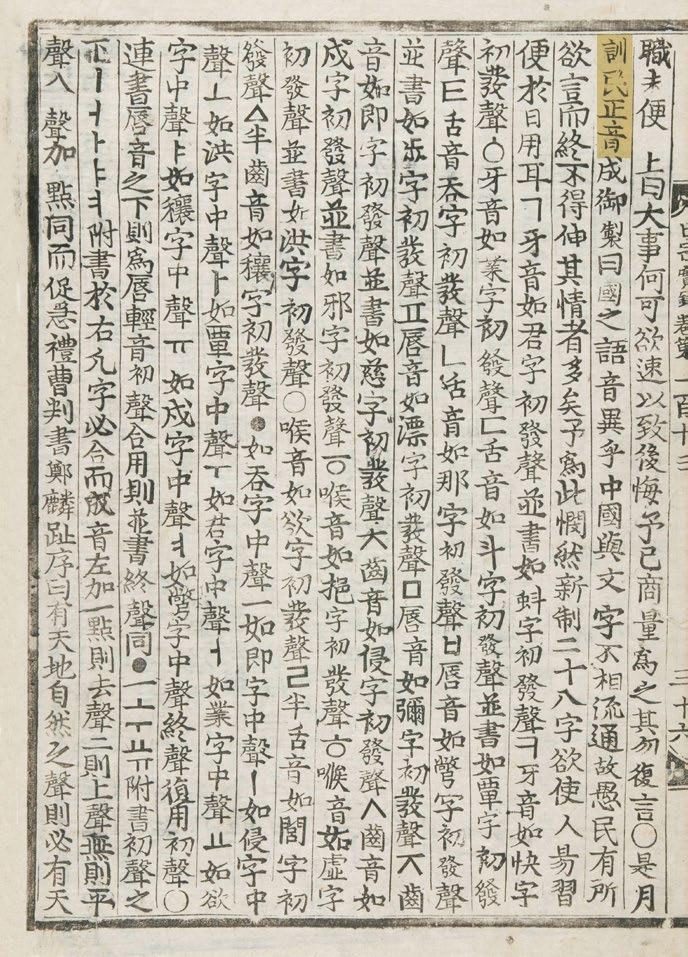 宗實錄卷第一百十三 三十六
職未便 上曰大事何可欲速以致後悔予已商量爲之其勿復言○是月
訓民正音成御製曰國之語音異乎中國與文字不相流通故愚民有所
欲言而終不得伸其情者多矣予爲此憫然新制二十八字欲使人易習
便於日用耳ㄱ牙音如君字初發聲並書如蚪字初發聲ㅋ牙音如快字
初發聲ㆁ牙音如業字初發聲ㄷ舌音如斗字初發聲並書如覃字初發
聲ㅌ舌音如呑字初發聲ㄴ舌音如那字初發聲ㅂ唇音如彆字初發聲
並書如步字初發聲ㅍ唇音如漂字初發聲ㅁ唇音如彌字初發聲ㅈ齒
音如即字初發聲並書如慈字初發聲ㅊ齒音如侵字初發聲ㅅ齒音如
戍字初發聲並書如邪字初發聲ㆆ喉音如挹字初發聲ㅎ喉音如虛字
初發聲並書如洪字初發聲ㅇ喉音如欲字初發聲ㄹ半舌音如閭字初
發聲ㅿ半齒音如穰字初發聲ㆍ如呑字中聲ㅡ如即字中聲ㅣ如侵字中
聲ㅗ如洪字中聲ㅏ如覃字中聲ㅜ如君字中聲ㅓ如業字中聲ㅛ如欲
字中聲ㅑ如穰字中聲ㅠ如戍字中聲ㅕ如彆字中聲終聲復用初聲○
連書唇音之下則爲唇輕音初聲合用則並書終聲同ㆍㅡㅗㅜㅛㅠ附書初聲之
下ㅣㅓㅏㅑㅕ附書於右凡字必合而成音左加一點則去聲二則上聲無則平
聲入聲加點同而促急禮曹判書鄭麟趾序曰有天地自然之聲則必有天